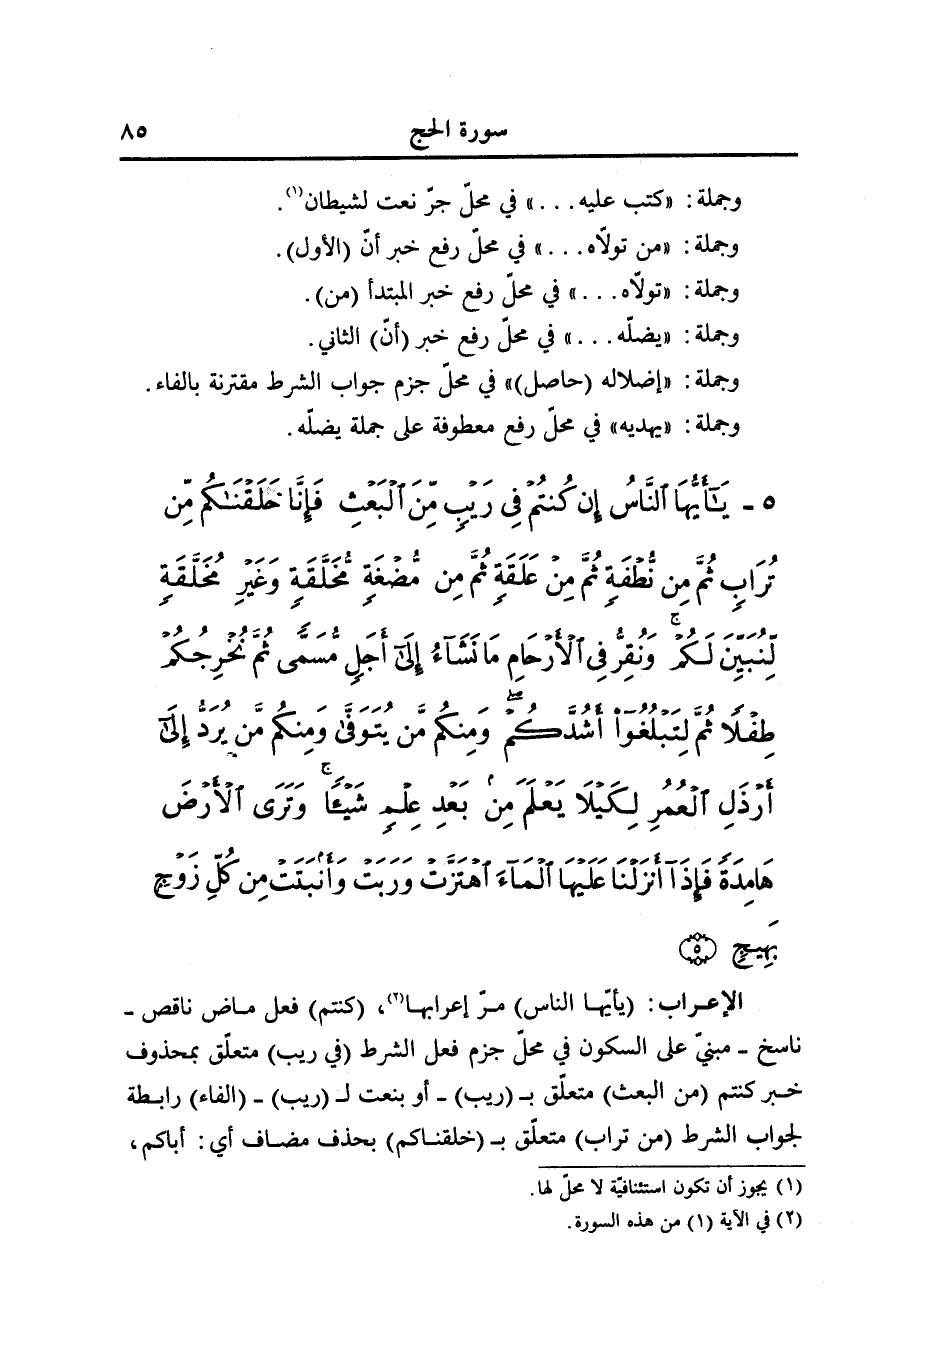 سورة الحج ٨٥
وجملة: «كتب عليه...» في محلّ جرّ نعت لشيطان(١).
وجملة: «من تولّاه...» في محلّ رفع خبر أنّ (الأول).
وجملة: «تولّاه...» في محلّ رفع خبر المبتدأ (من).
وجملة: «يضلّه...» في محلّ رفع خبر (أنّ) الثاني.
وجملة: «إضلاله (حاصل)» في محلّ جزم جواب الشرط مقترنة بالفاء.
وجملة: «يهديه» في محلّ رفع معطوفة على جملة يضلّه.
٥ - يَـٰٓأَيُّهَا ٱلنَّاسُ إِن كُنتُمْ فِى رَيْبٍ مِّنَ ٱلْبَعْثِ فَإِنَّا خَلَقْنَـٰكُم مِّن
تُرَابٍ ثُمَّ مِن نُّطْفَةٍ ثُمَّ مِنْ عَلَقَةٍ ثُمَّ مِن مُّضْغَةٍ مُّخَلَّقَةٍ وَغَيْرِ مُخَلَّقَةٍ
لِّنُبَيِّنَ لَكُمْ ۚ وَنُقِرُّ فِى ٱلْأَرْحَامِ مَا نَشَآءُ إِلَىٰٓ أَجَلٍ مُّسَمًّى ثُمَّ نُخْرِجُكُمْ
طِفْلًا ثُمَّ لِتَبْلُغُوٓا۟ أَشُدَّكُمْ ۖ وَمِنكُم مَّن يُتَوَفَّىٰ وَمِنكُم مَّن يُرَدُّ إِلَىٰٓ
أَرْذَلِ ٱلْعُمُرِ لِكَيْلَا يَعْلَمَ مِنۢ بَعْدِ عِلْمٍ شَيْـًٔا ۚ وَتَرَى ٱلْأَرْضَ
هَامِدَةً فَإِذَآ أَنزَلْنَا عَلَيْهَا ٱلْمَآءَ ٱهْتَزَّتْ وَرَبَتْ وَأَنۢبَتَتْ مِن كُلِّ زَوْجٍۭ
بَهِيجٍ ٥
الإعراب: (يأيّها الناس) مرّ إعرابها(٢)، (كنتم) فعل ماض ناقص -
ناسخ - مبنيّ على السكون في محلّ جزم فعل الشرط (في ريب) متعلّق بمحذوف
خبر كنتم (من البعث) متعلّق بـ (ريب) - أو بنعت لـ (ريب) - (الفاء) رابطة
لجواب الشرط (من تراب) متعلّق بـ (خلقناكم) بحذف مضاف أي: أباكم،
(١) يجوز أن تكون استئنافيّة لا محلّ لها.
(٢) في الآية (١) من هذه السورة.